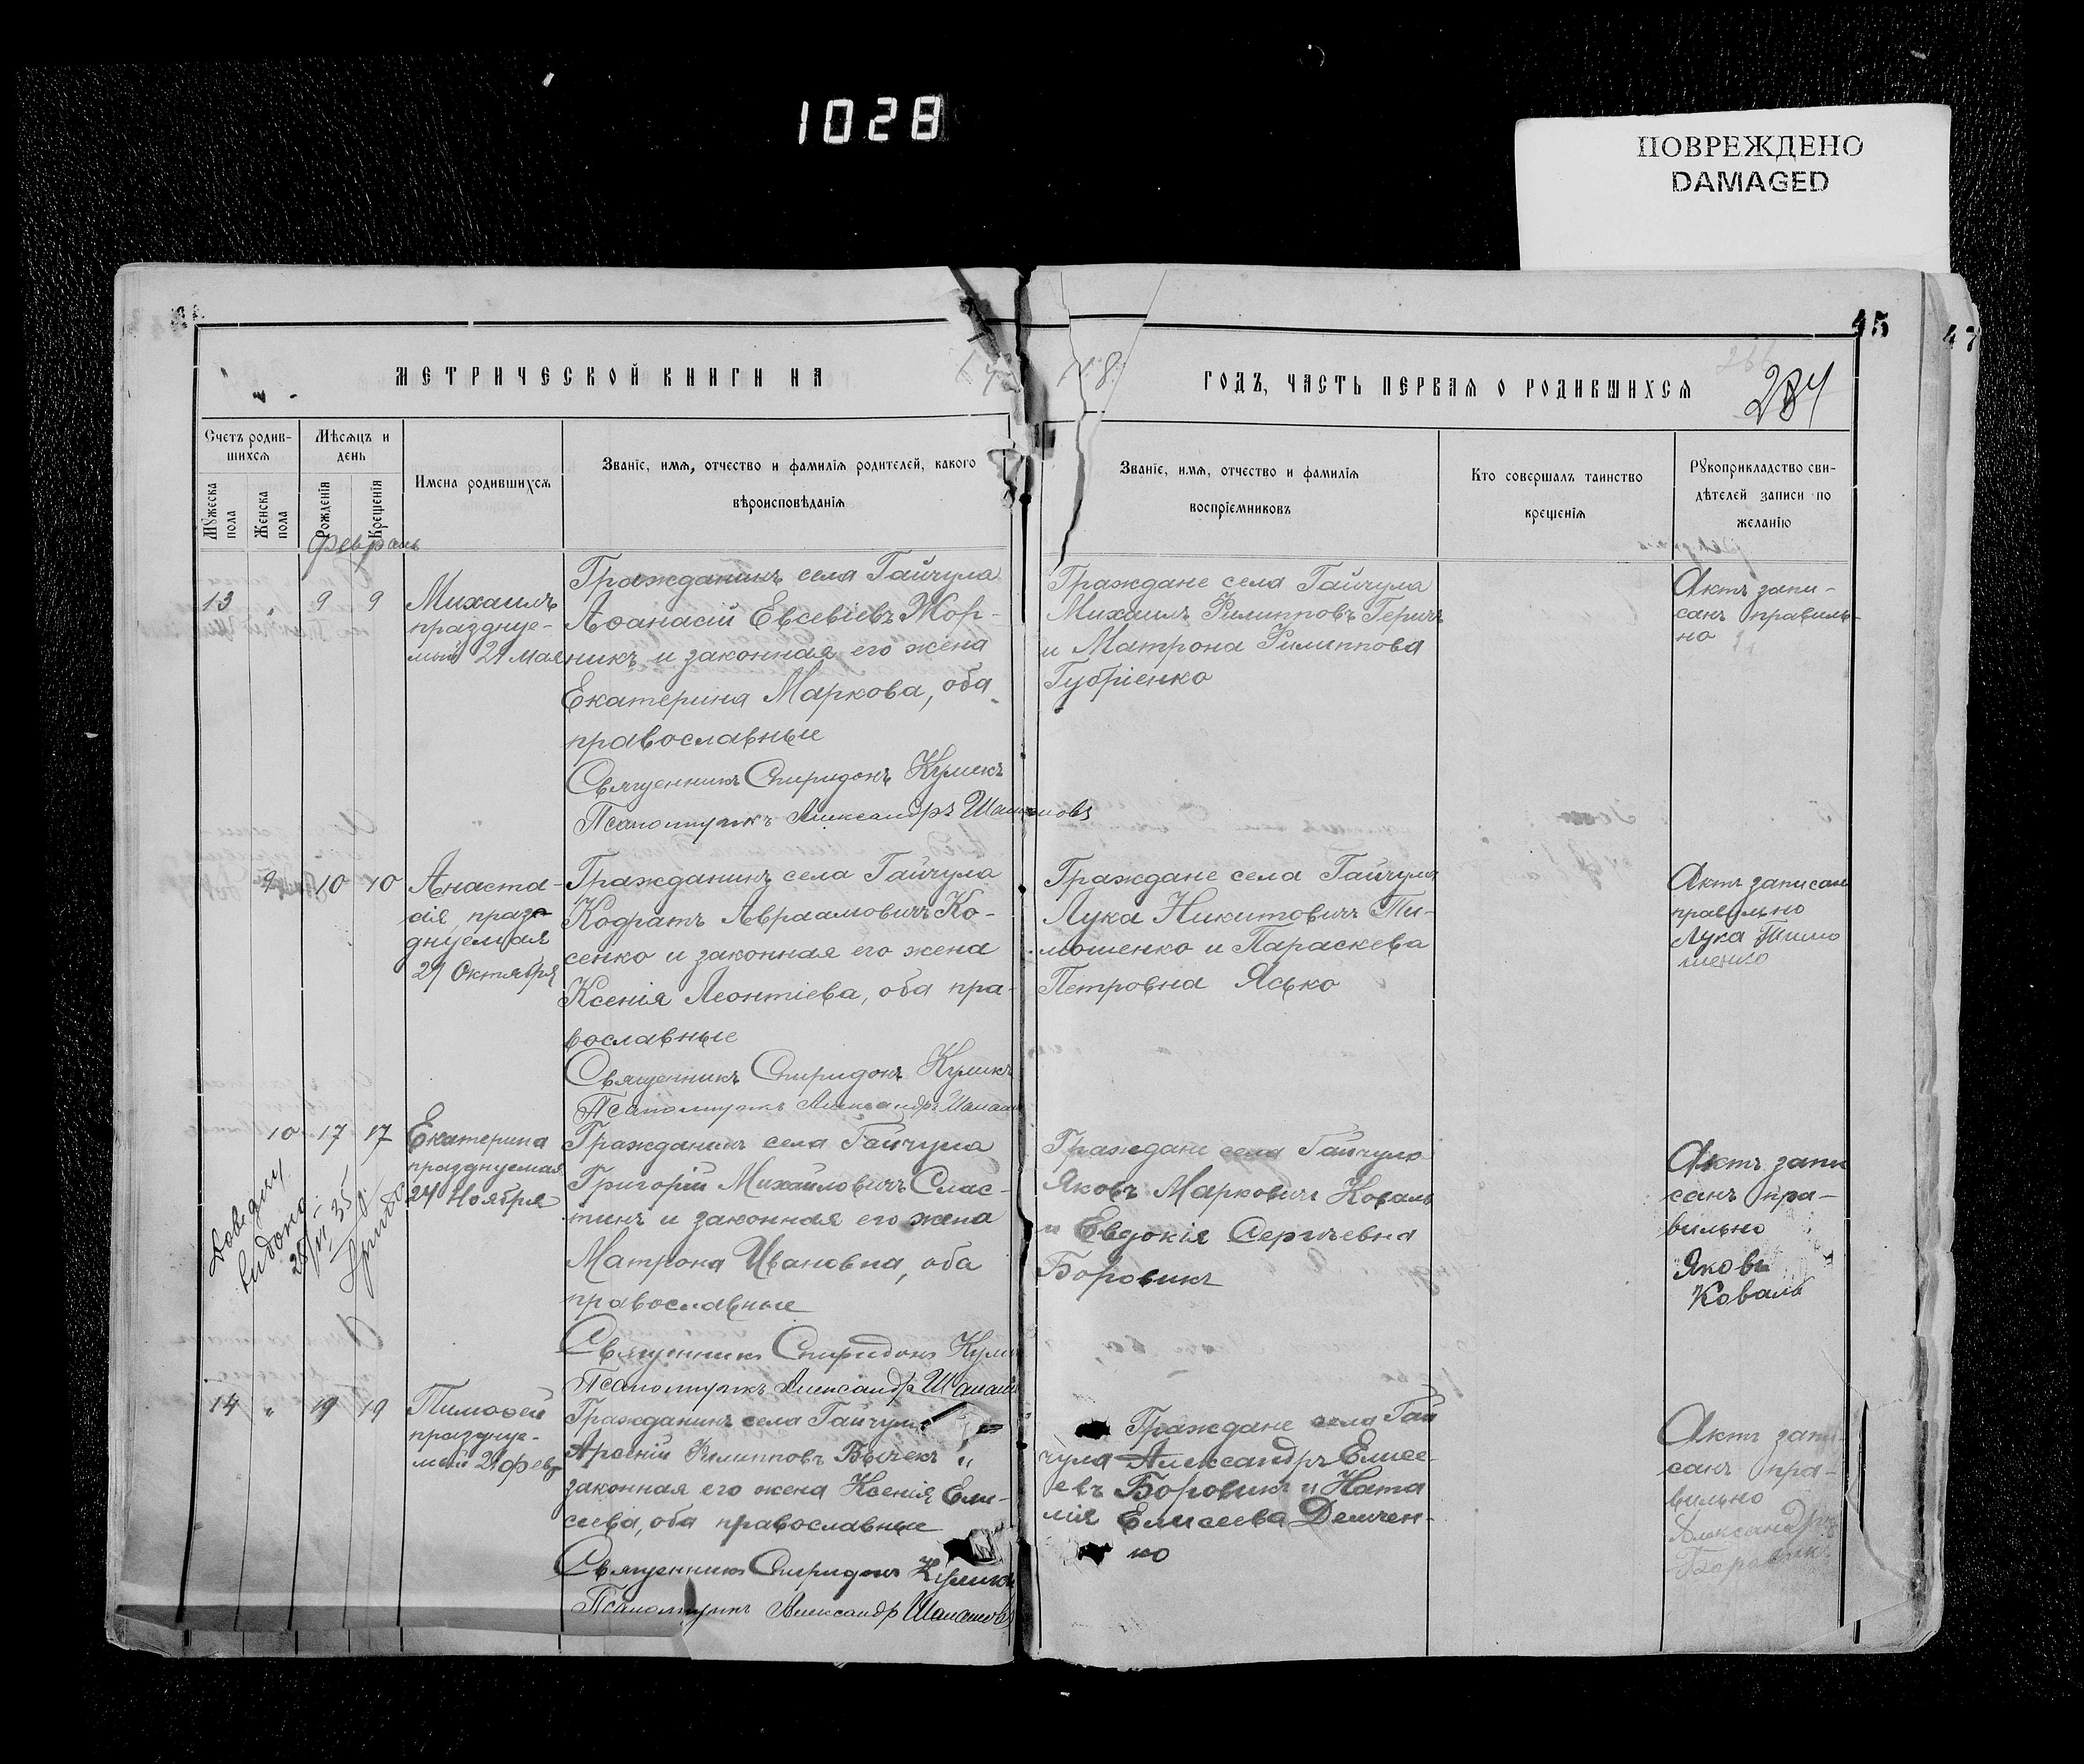 1028
ПОВРЕЖДЕНО
DAMAGED
45
47
МЕТРИЧЕСКОЙ КНИГИ НА
ГОДЪ, ЧАСТЬ ПЕРВАЯ О РОДИВШИХСЯ
284
Счетъ родив-
шихся
Мужеска
пола
Женска
пола
Мѣсяцъ и
день
Рожденія
Крещенія
Имена родившихся
Званіе, имя, отчество и фамилія родителей, какого
вѣроисповѣданія
Званіе, имя, отчество и фамилія
воспріемниковъ
Кто совершалъ таинство
крещенія
Рукоприкладство сви-
дѣтелей записи по
желанію
Февраль
13 " 9 9
Михаилъ
праздуе-
мый 21 мая
Гражданинъ села Гайчула
Аѳанасій Евсевіевъ Жор-
никъ и законная его жена
Екатерина Маркова, оба
православные
Священникъ Спиридонъ Куликъ
Псаломщикъ Александръ
Граждане села Гайчула
Михаилъ Филипповъ Геричъ
и Матрона Филиппова
Губріенко
Актъ запи-
санъ правиль-
но
9 10 10
Анаста-
сія, празд-
днуемая
29 Октября
Гражданинъ села Гайчула
Кодратъ Авраамовичъ Ко-
сенко и законная его жена
Ксенія Леонтіева, оба пра-
вославные
Священникъ Спиридонъ Куликъ
Псаломщикъ Александръ
Граждане села Гайчула
Лука Никитовичъ Ти-
мошенко и Параскева
Петровна Ясько
Актъ записан
правильно
Лука Тимо
шенко
10 17 17
Екатерина
празднуемая
24 Ноября
Гражданинъ села Гайчула
Григорій Михайловичъ Слас-
тинъ и законная его жена
Матрона Ивановна, оба
православные
Священникъ Спиридонъ Кули
Псаломщикъ Александръ
Граждане села Гайчула
Яковъ Марковичъ Коваль
и Евдокія Сергіевна
Боровикъ
Актъ запи
санъ пра-
вильно
Яковъ
Коваль
Довідку
видано
14 " 19 19
Тимоѳей
праздуе-
мый 21 фев
Гражданинъ села Гайчула
Арсеній Филипповъ Бычекъ и
законная его жена Ксенія Ели-
сеева, оба православные
Священникъ Спиридонъ Куликъ
Псаломщикъ Александръ
Граждане села Гай
чула Александръ Елисе-
евъ Боровикъ и Ната
лія Елисеева Демчен-
ко
Актъ запи
санъ пра-
вильно
Александръ
Боровикъ